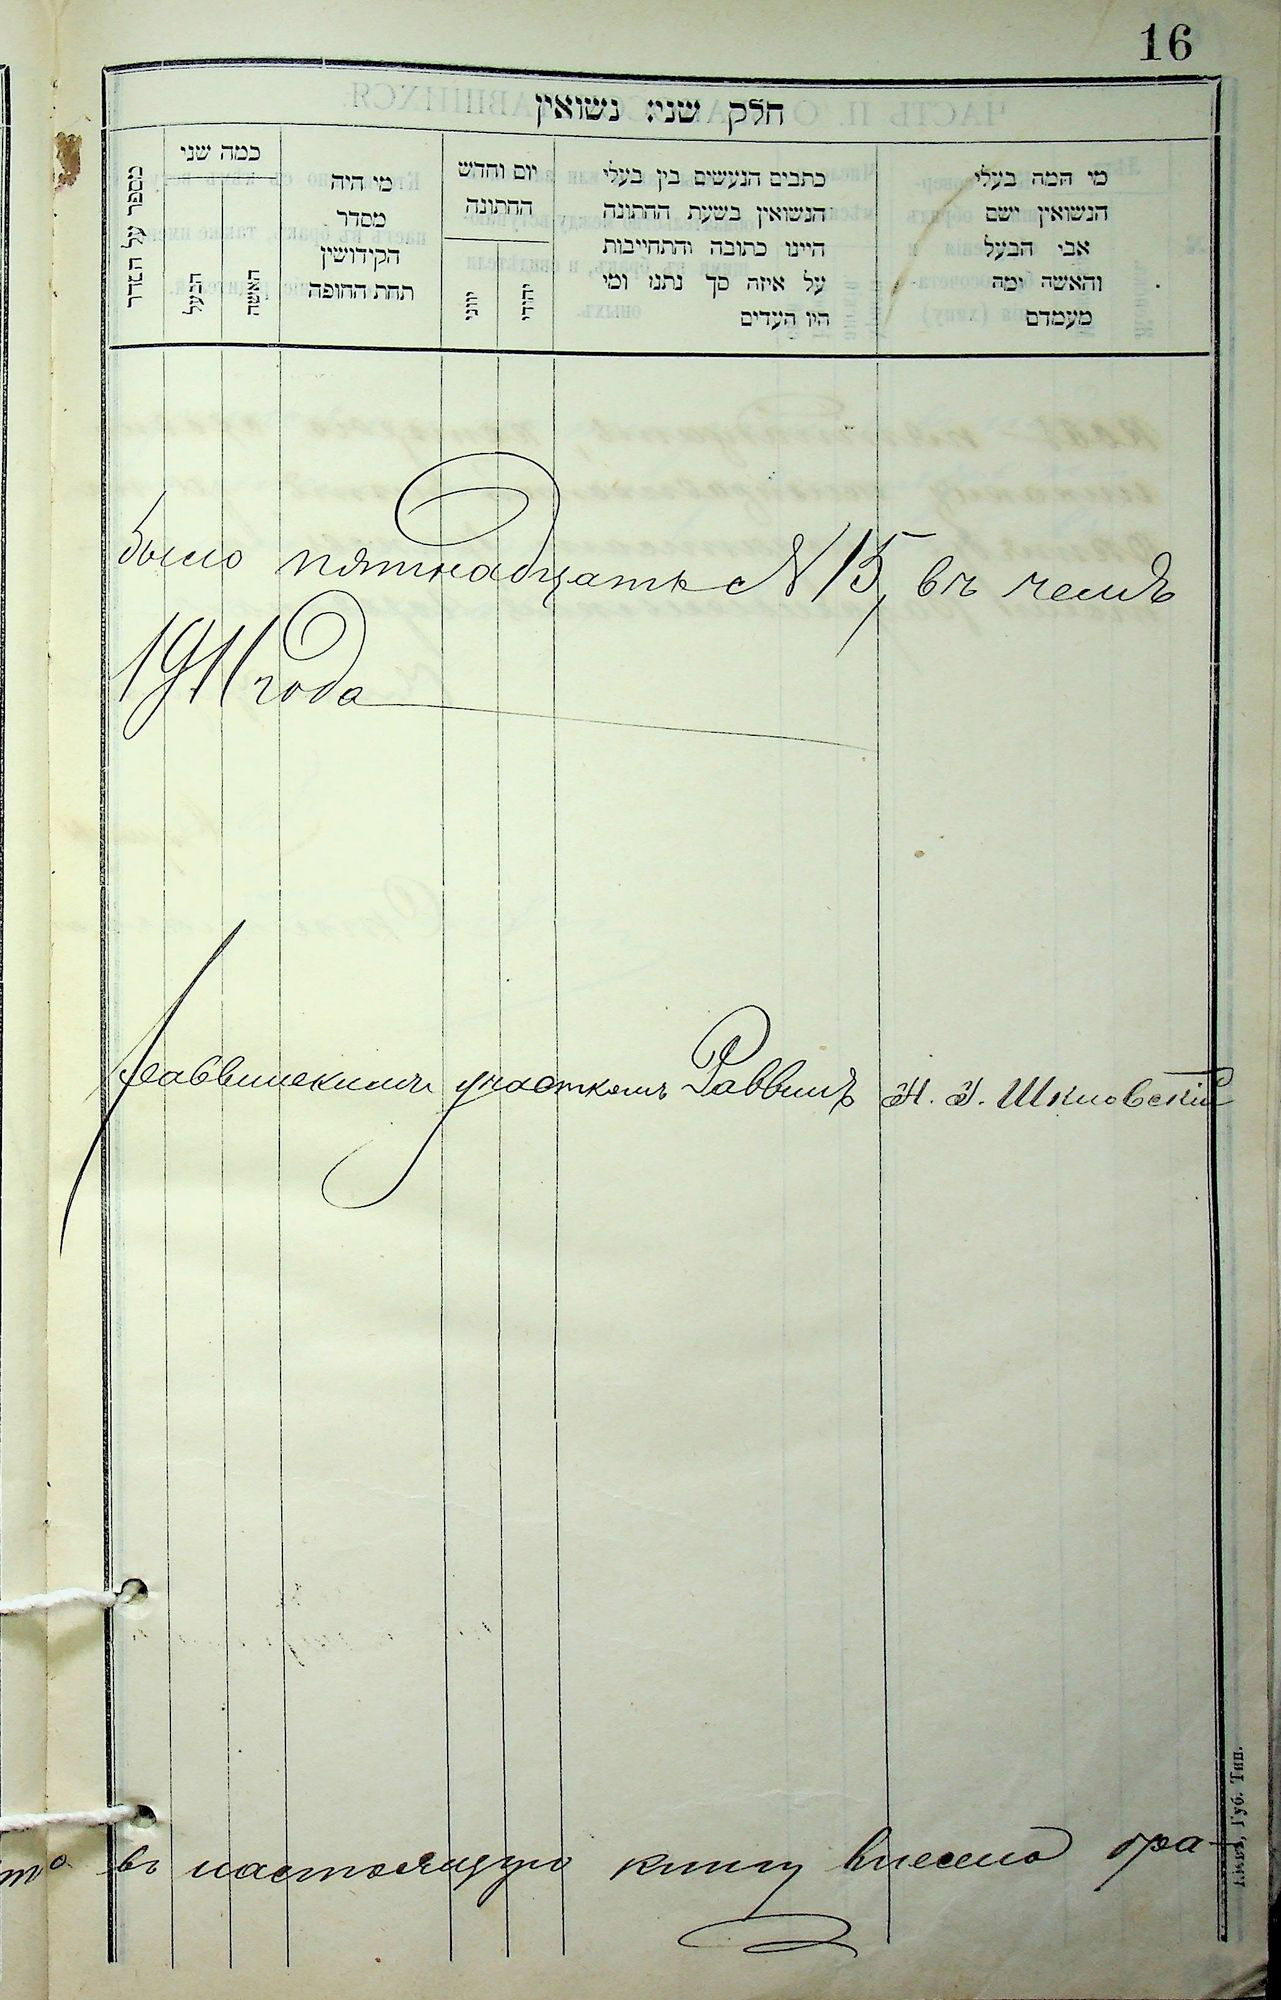 16
חלק שני: נשואין
מספר על הסדר
כמה שני
הבעל
האשה
מי היה
מסדר
הקידושין
תחת החופה
יום וחדש
החתונה
יווני
יהודי
כתבים הנעשים בין בעלי
הנשואין בשעת החתונה
היינו כתובה והתחייבות
על איזה סך נתנו ומי
היו העדים
מי המה בעלי
הנשואין ושם
אבי הבעל
והאשה ומה
מעמדם
было пятнадцать № 15, въ чемъ
1911 года
участкомъ Раввинъ Шкловскій
то въ настоящую книгу внесено бра-
Губ. Тип.